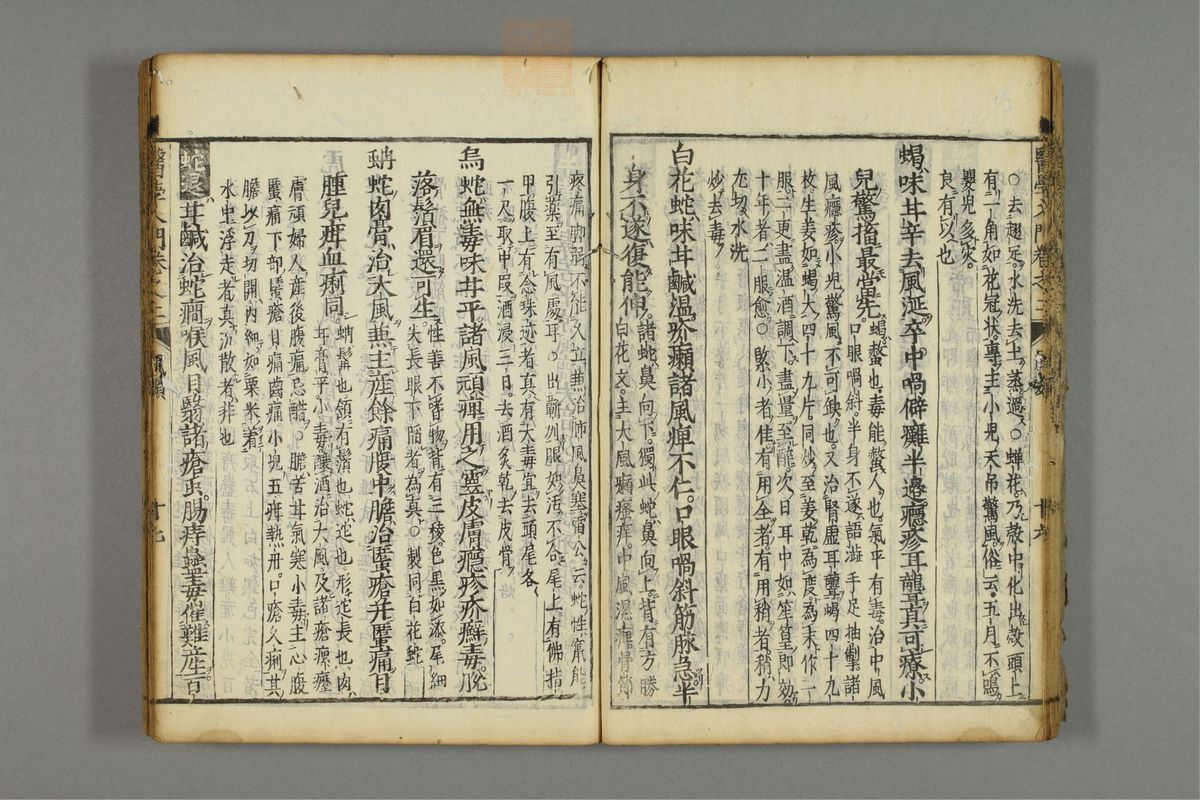 ○去翅足水洗去土蒸過○蟬花乃殼中化出殼頭上
有一角如花冠狀專主小兒天吊驚風俗云五月不鳴
嬰兒多灾
良有以也
蝎味甘辛去風涎卒中喎僻癱半邊癮疹耳聾真可療小
兒驚搐最當先
蝎螫也毒能螫人也氣平有毒治中風
口眼喎斜半身不遂語澁手足抽掣諸
風癮疹小兒驚風不可缺也又治腎虛耳聾蝎四十九
枚生姜如蝎大四十九片同炒至姜乾為度為末作一
服二更盡温酒調下盡量至醉次日耳中如笙篁即効
十年者二服愈○緊小者佳有用全者有用稍者稍力
尤切水洗
炒去毒
白花蛇味甘鹹温疥癩諸風痺不仁口眼喎斜筋脉急半
身不遂復能伸
諸蛇鼻向下獨此蛇鼻向上背有方勝
白花文主大風癩癢中風濕痺骨節
疼痛脚弱不能久立兼治肺風鼻塞雷公云蛇性竄能
引藥至有風處耳○出蘄州眼如活不合尾上有佛指
甲腹上有念珠迹者真有大毒宜去頭尾各
一尺取中段酒浸三日去酒炙乾去皮骨
烏蛇無毒味甘平諸風頑痺用之靈皮膚癮疹疥癬毒脫
落鬚眉還可生
性善不嗜物背有三稜色黑如漆尾細
尖長眼下陷者為真○製同白花蛇
蚺蛇肉膏治大風兼主產餘痛腹中膽治䘌瘡并瞖痛目
腫兒疳血痢同
蚺髯也領有鬚也蛇迤也形迤長也肉
甘膏平小毒釀酒治大風及諸瘡瘰癧
膚頑婦人産後腹痛忌醋○膽苦甘氣寒小毒主心腹
䘌痛下部䘌瘡目痛齒痛小兒五疳熱丹口瘡久痢其
膽以刀切開内細如粟米着
水中浮走者真沉散者非也
蛇退甘鹹治蛇癎喉風目翳諸瘡虫腸痔蠱毒催難產百
醫學入門卷之二
醫學入門卷之二